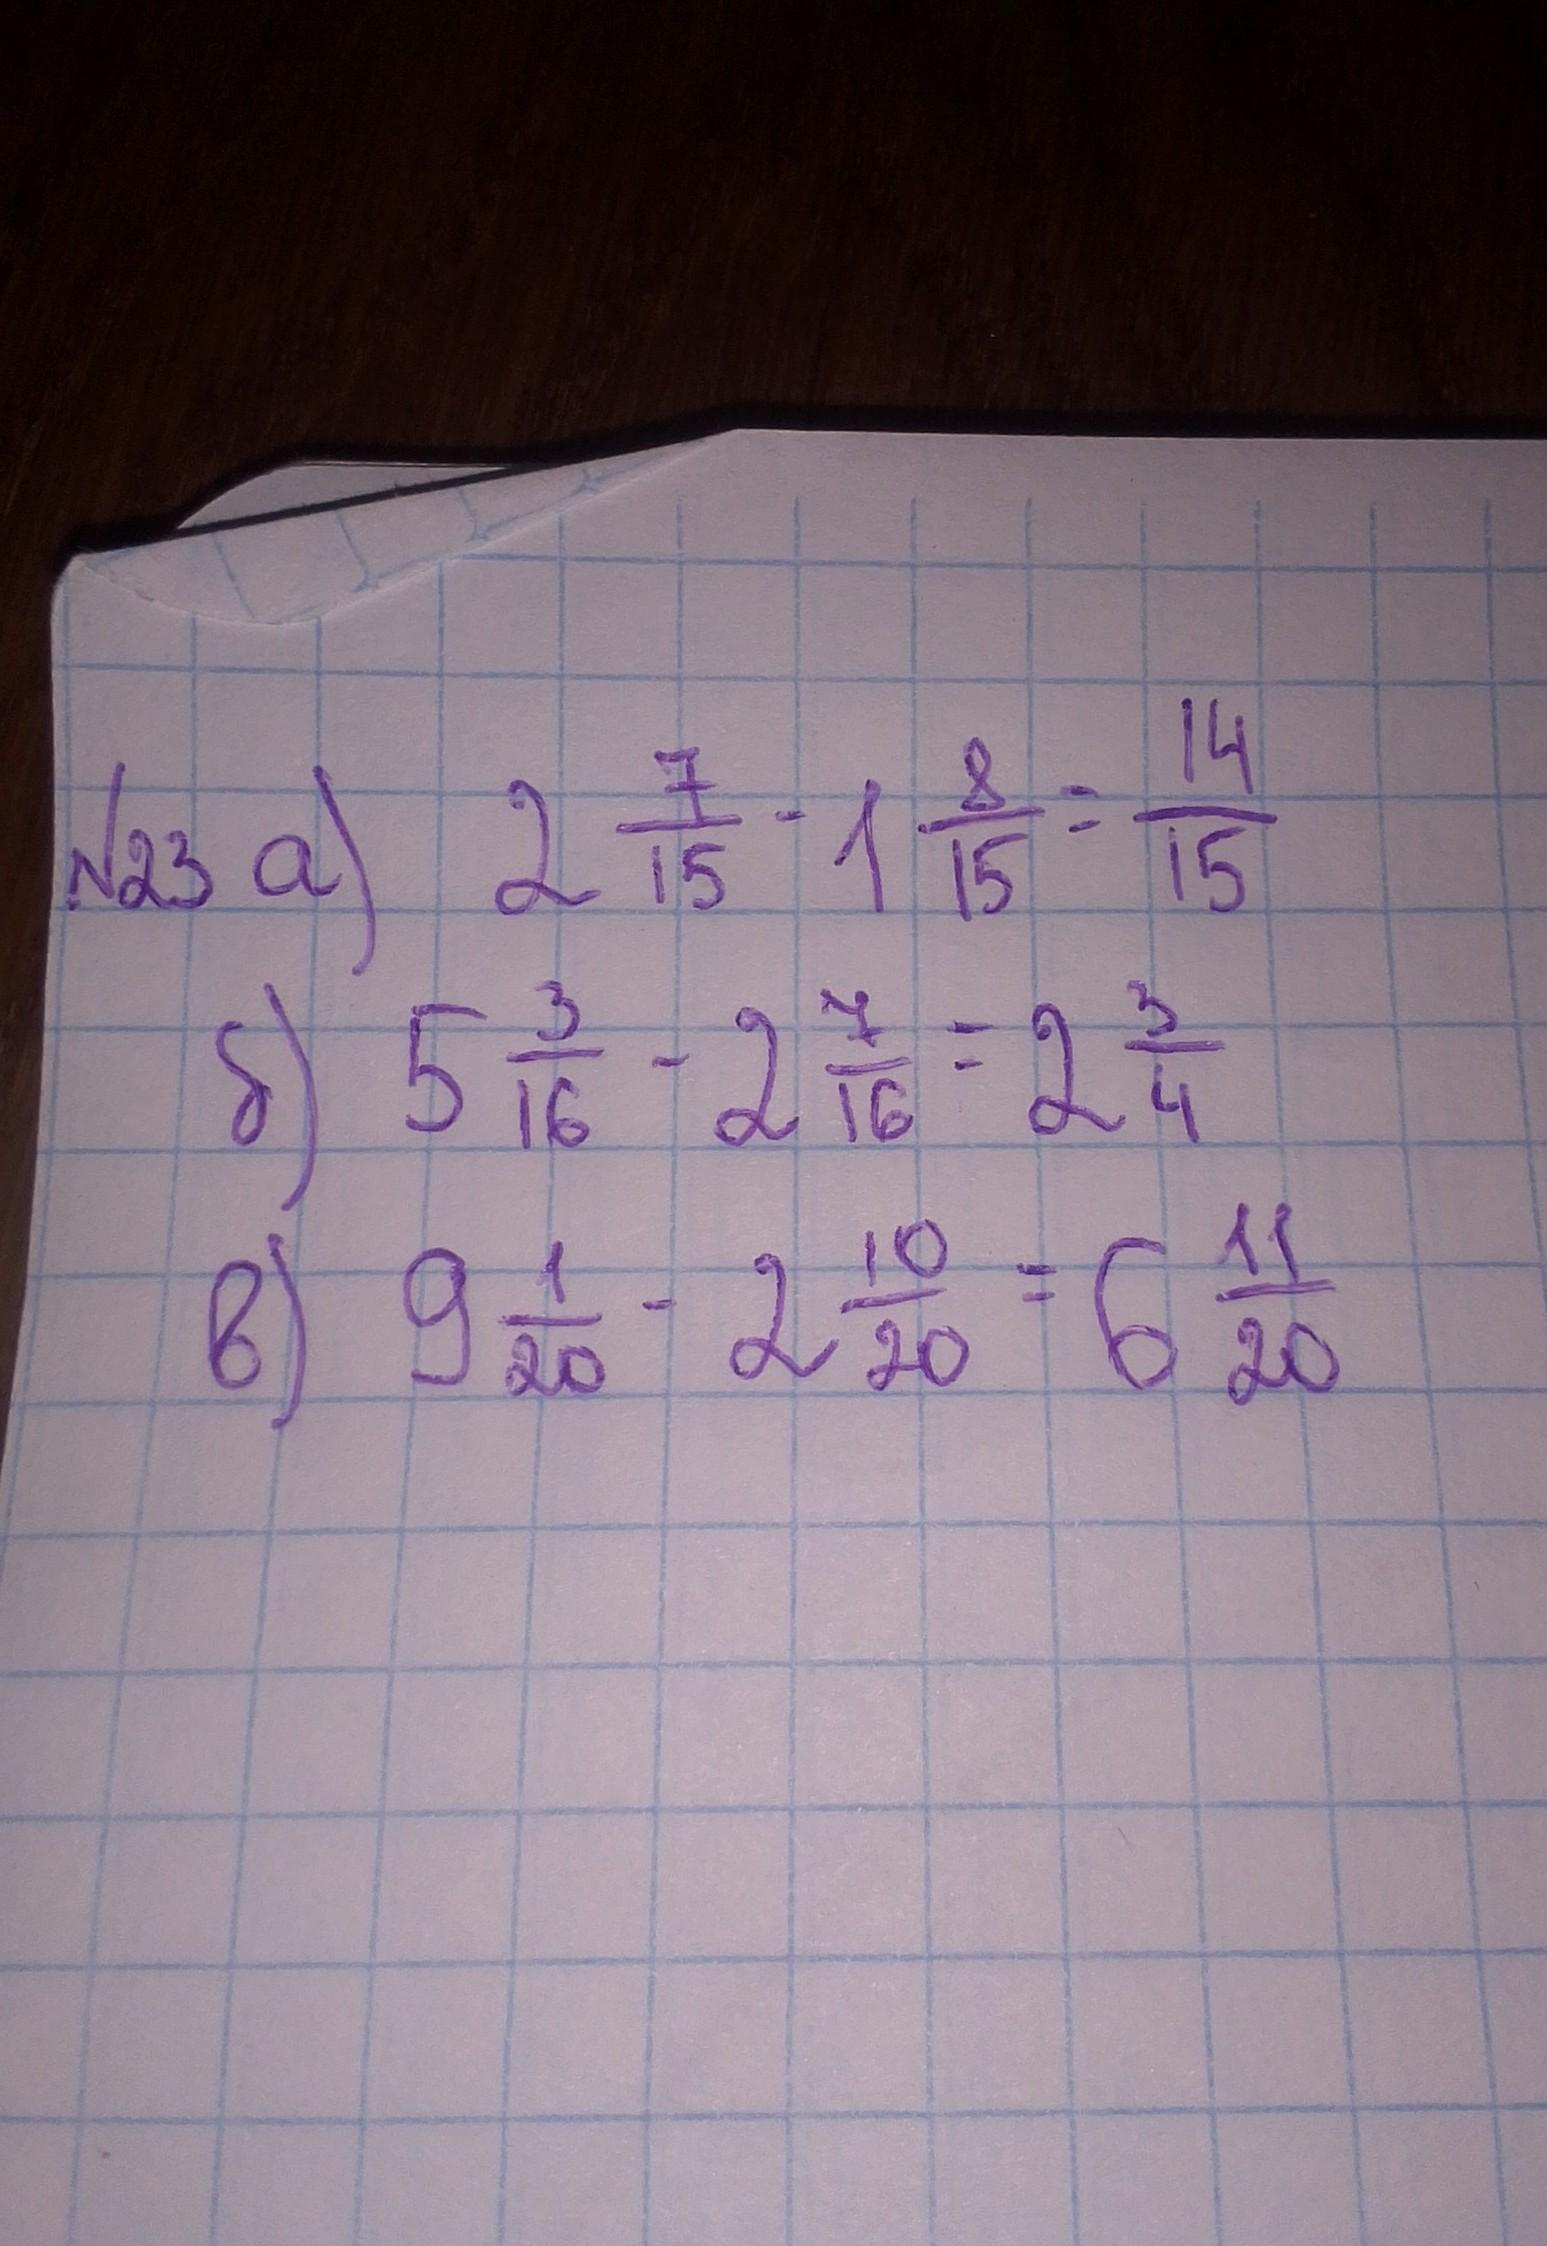 №23 а) 2 7/15 - 1 8/15 = 14/15
б) 5 3/16 - 2 7/16 = 2 3/4
в) 9 1/20 - 2 10/20 = 6 11/20